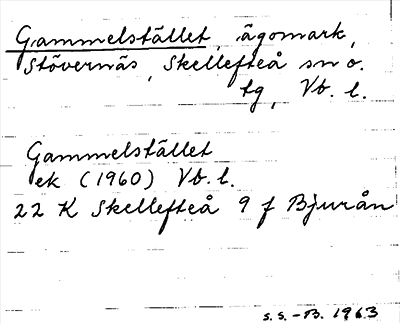 Gammelstället, ägomark,
Stövernäs, Skellefteå sn o.
tg, Vb. l.
Gammelstället
ek (1960) Vb. l.
22 K Skellefteå 9 f Bjurån
S.S.-B. 1963